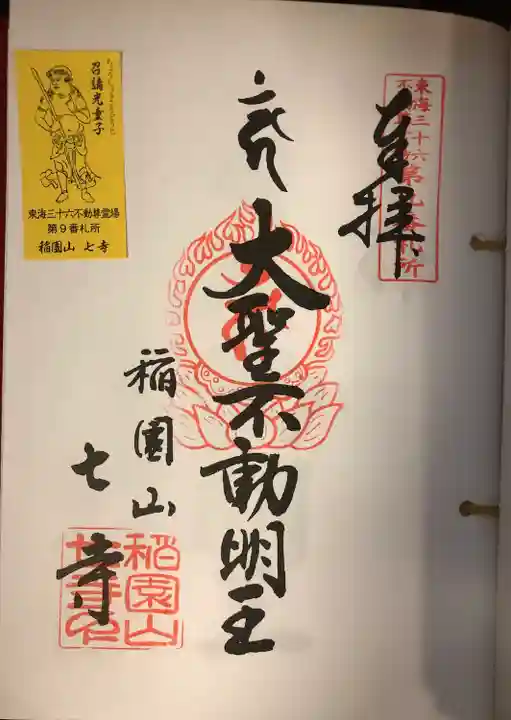 東海三十六
不動尊霊場
第九番札所
奉拝
大聖不動明王
稲園山
七寺
稲園山
七寺印
召請光童子
東海三十六不動尊霊場
第9番札所
稲園山 七寺